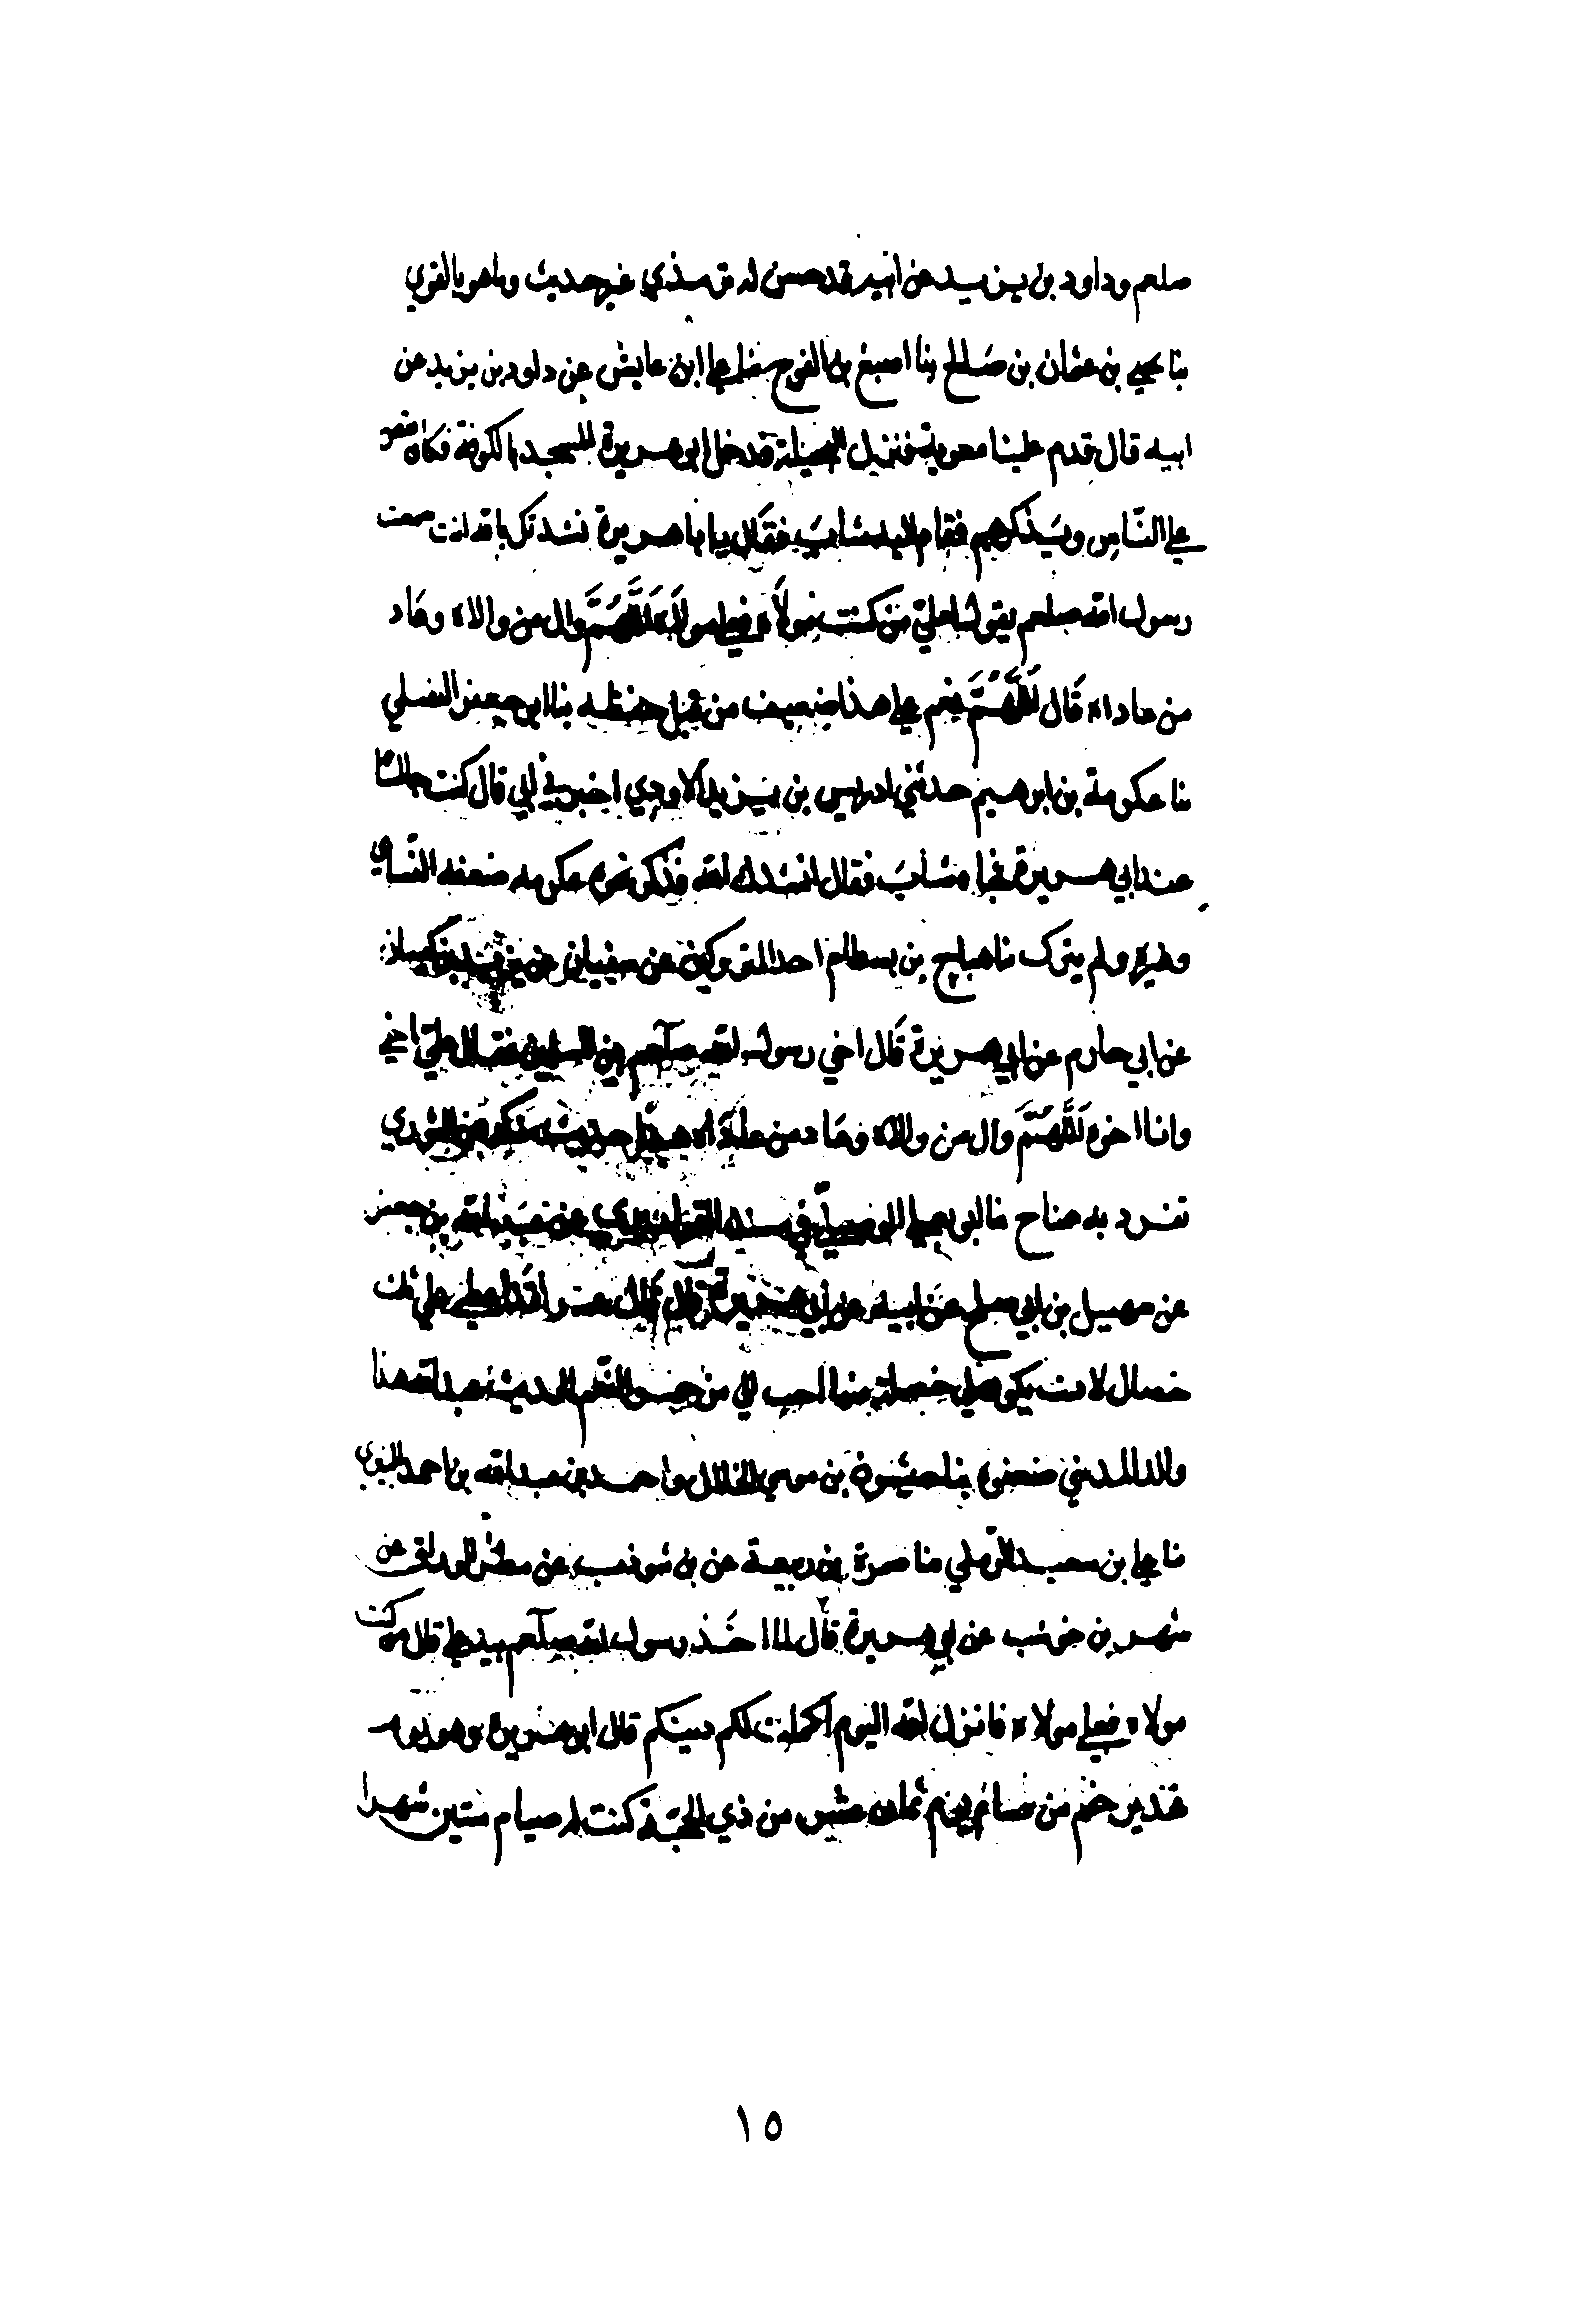 صلعم وداود بن يزيد عن ابيه قد حسن له ترمذي غير حديث وما هو بالقوي
بنا يحيى بن عثمان بن صالح بنا اصبغ بن الفرج علي ابن عابس عن داود بن يزيد عن
ابيه قال قدم علينا معوية فنزل النخيلة فدخل ابو هريرة المسجد بالكوفة فكان يقص
علي الناس ويذكرهم فقام اليه شاب فقال يا با هريرة نشدتك بالله انت سمعت
رسول الله صلعم يقول لعلي من كنت مولاه فعلي مولاه اللهم وال من والاه وعاد
من عاداه قال اللهم نعم علي هذا ضعيف من قبل حفظه بنا ابن جعفر
نا عكرمة بن ابرهيم حدثني ادريس بن يزيد الاودي اخبرني ابي قال كنت جالسا
عند ابي هريرة فجاء شاب فقال انشدك الله فذكر نحوه عكرمه ضعفه النساي
وغيره ولم يترك نا هياج بن بسطام احد المتروكين عن سفيان عن يزيد بن كيسان
عن ابي حازم عن ابي هريرة قال اخي رسول الله صلعم بين المسلمين فقال علي اخي
وانا اخوه اللهم وال من والاه وعاد من عاداه هذا حديث منكر عن الثوري
تفرد به هياج نا ابو يعلي الموصلي في مسنده القواريري عن عبد الله بن جعفر
عن سهيل بن ابي صالح عن ابيه عن ابي هريرة قال قال عمر لقد اعطي علي ثلث
خصال لان يكون لي خصلة منها احب الي من حمر النعم الحديث عبد الله هذا
والد المديني ضعفوه بنا حبشون بن موسي الخلال واحمد بن عبد الله بن احمد
نا علي بن سعيد الرملي نا ضمرة بن ربيعة عن بن شوذب عن مطر الوراق عن
شهر بن حوشب عن ابي هريرة قال لما اخذ رسول الله صلعم بيد علي قال من كنت
مولاه فعلي مولاه فانزل الله اليوم اكملت لكم دينكم قال ابو هريرة وهو يوم
غدير خم من صام يوم ثمان عشر من ذي الحجة كنت له صيام ستين شهرا
١٥